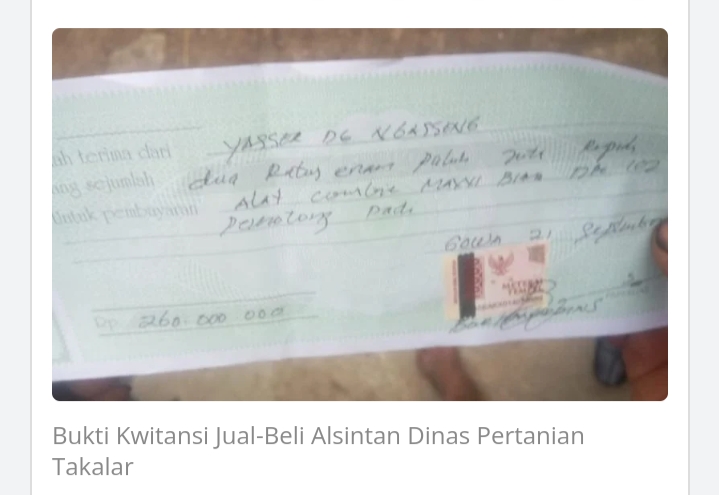 ah terima dari YASSER DG NGASSENG
ang sejumlah dua Ratus enam Puluh Juta Rupiah
Untuk pembayaran ALAT combine MAXXI
Pemotong Padi
Gowa 21 September
METERAI
TEMPEL
Rp 260.000 000
Bukti Kwitansi Jual-Beli Alsintan Dinas Pertanian
Takalar